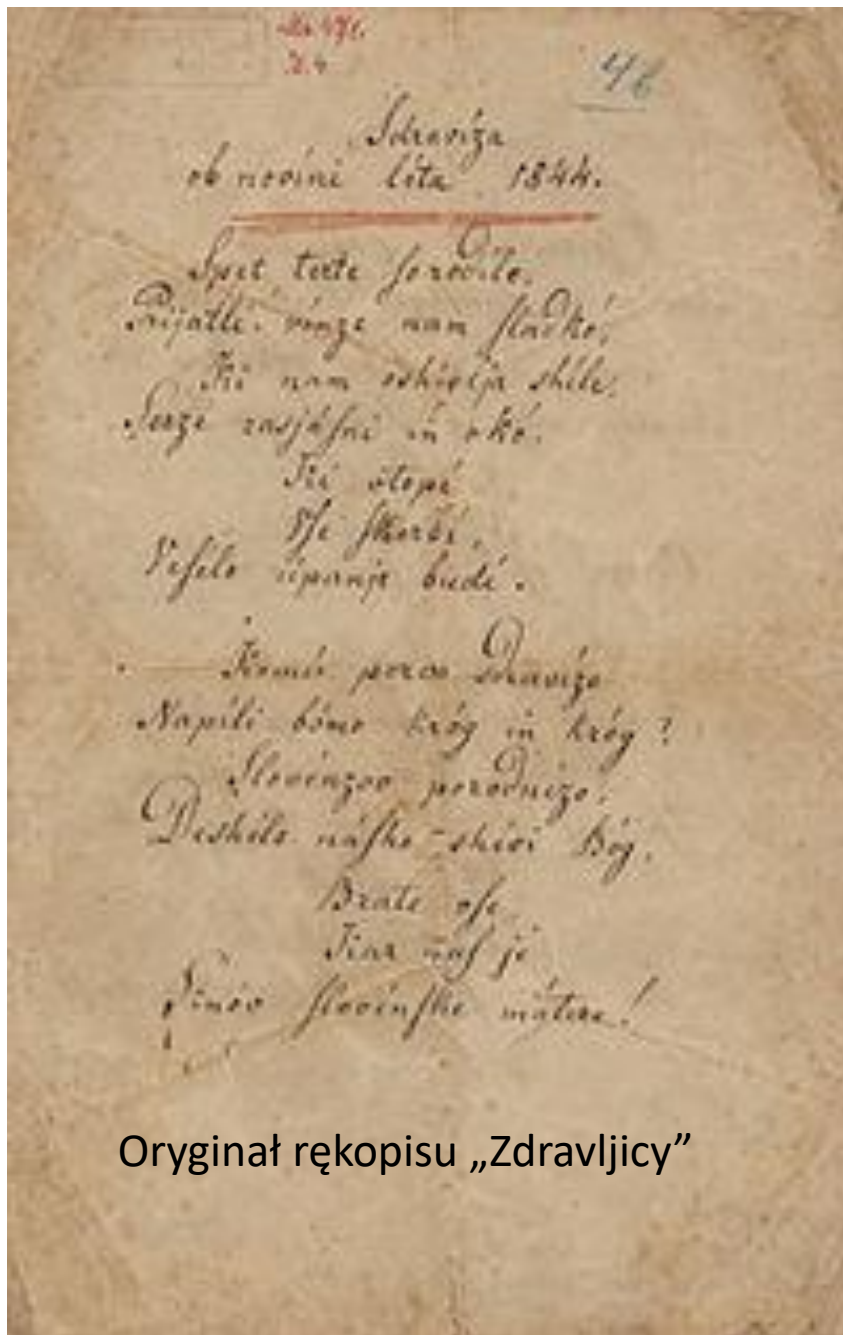 46
Sdravíza
ob novini léta 1844.
Spet terte ſo rodíle,
Prijatli! vínze nam ſladkó,
Ki nam oshivlja shile,
Serzé rasjáſni in okó.
Ki utopí
Vſe ſkerbí,
Veſélo úpanje budí.
Komú
Napíli bómo króg in króg?
Slovénzov
Deshélo náſho shívi Bóg,
Brate vſe,
Kar náſ je
Sinóv ſlovénſke mátere!
Oryginał rękopisu „Zdravljicy”